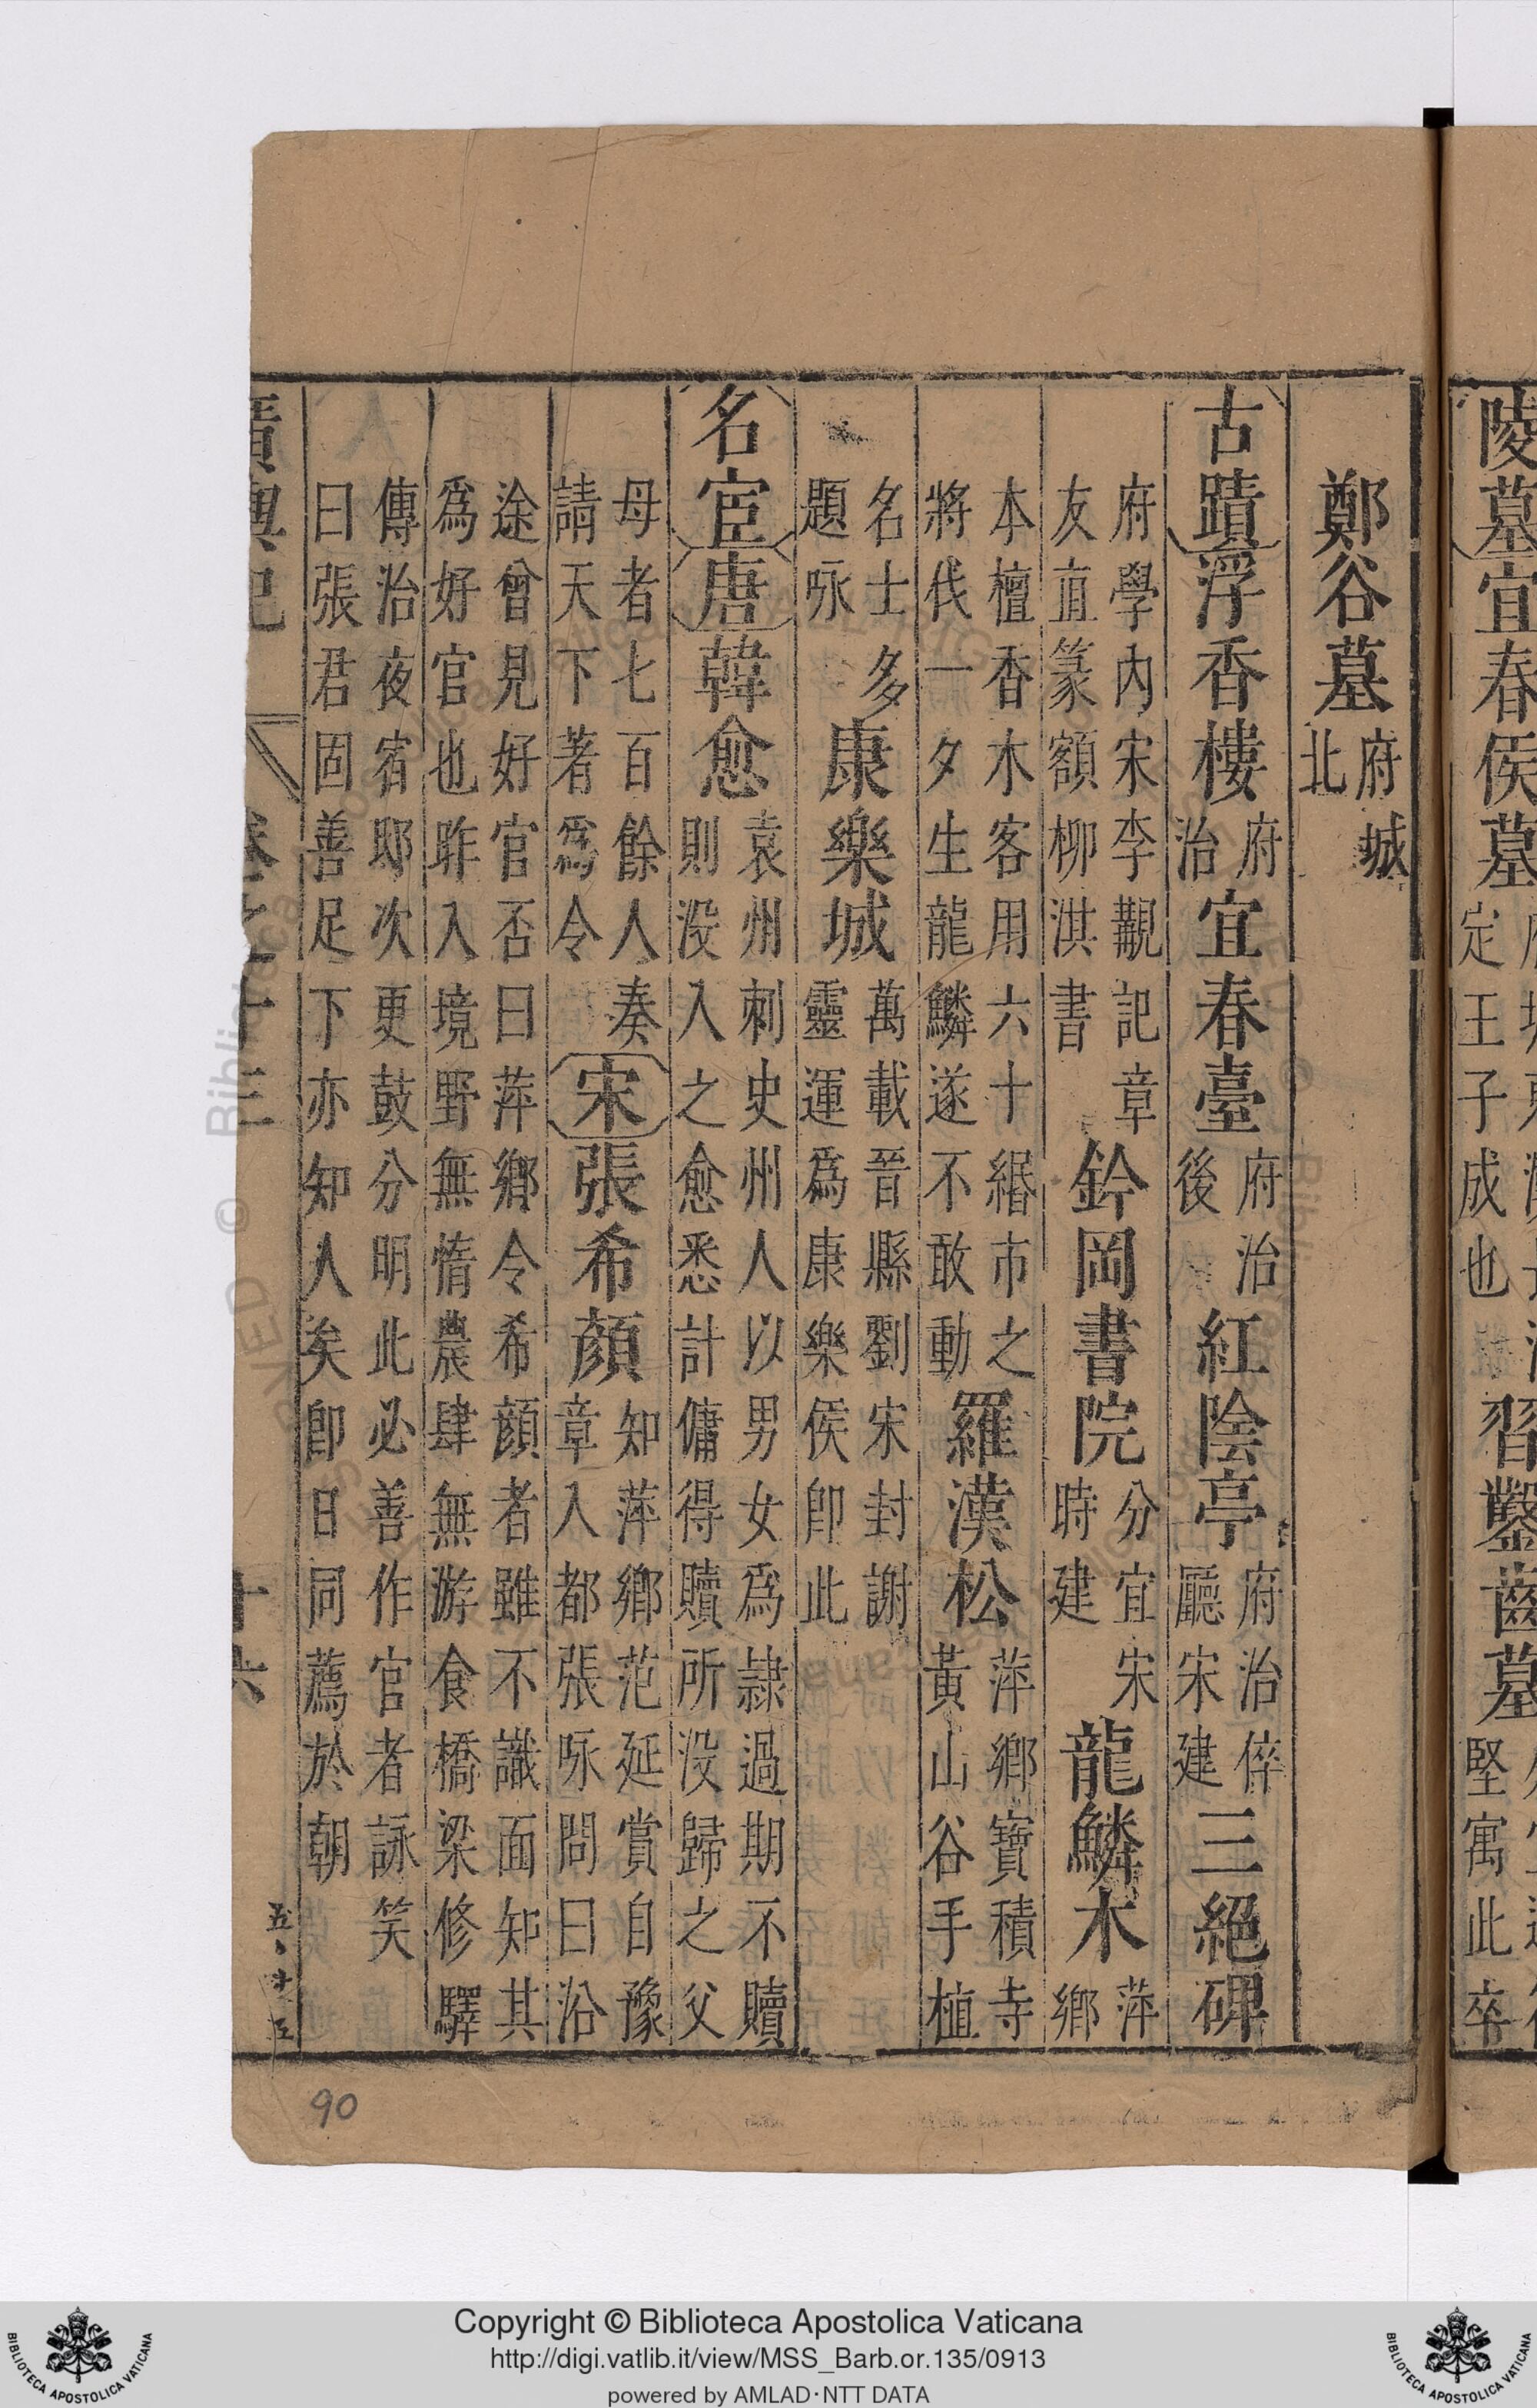 陵墓宜春侯墓定王子成也習鑿齒墓堅寓此卒
鄭谷墓府城北
古蹟浮香樓府治宜春臺府治後紅陰亭府治倅廳宋建三絕碑
府學內宋李覯記章友直篆額柳淇書鈐岡書院分宜宋時建龍鱗木萍鄉
本檀香木客用六十緡市之將伐一夕生龍鱗遂不敢動羅漢松萍鄉寶積寺黃山谷手植
名士多題咏康樂城萬載晉縣劉宋封謝靈運爲康樂侯卽此
名宦唐韓愈袁州刺史州人以男女爲隷過期不贖則没入之愈悉計傭得贖所没歸之父
母者七百餘人奏請天下著爲令宋張希顔知萍鄉范延賞自豫章入都張咏問曰沿
途曾見好官否曰萍鄉令希顔者雖不識面知其爲好官也昨入境野無惰農肆無游食橋梁修驛
傳治夜宿邸次更鼓分明此必善作官者詠笑曰張君固善足下亦知人矣卽日同薦於朝
廣輿記 卷之十三 十六
90
Copyright © Biblioteca Apostolica Vaticana
http://digi.vatlib.it/view/MSS_Barb.or.135/0913
powered by AMLAD·NTT DATA
BIBLIOTECA APOSTOLICA VATICANA
BIBLIOTECA APOSTOLICA VATICANA